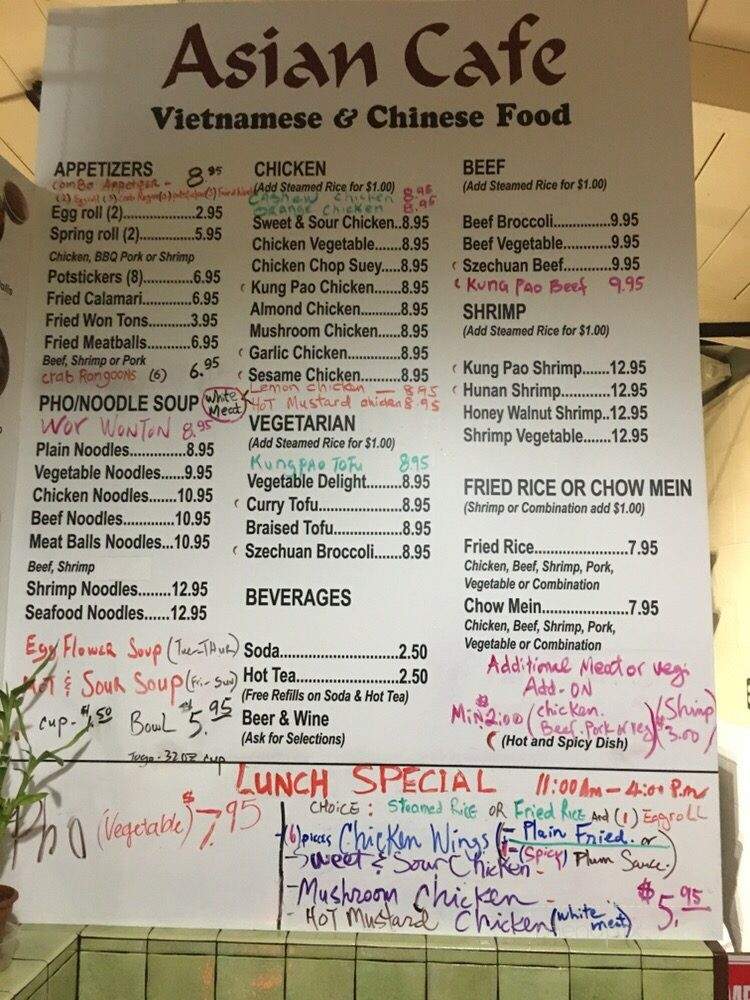 Asian Cafe
Vietnamese & Chinese Food
APPETIZERS 8.95
Combo Appetizer -
Egg roll (2)..............2.95
Spring roll (2)............5.95
Chicken, BBQ Pork or Shrimp
Potstickers (8)...........6.95
Fried Calamari...........6.95
Fried Won Tons.........3.95
Fried Meatballs..........6.95
Beef, Shrimp or Pork
Crab Rangoons (6) 6.95
PHO/NOODLE SOUP
Wor Wonton 8.95
Plain Noodles............8.95
Vegetable Noodles.....9.95
Chicken Noodles.......10.95
Beef Noodles............10.95
Meat Balls Noodles...10.95
Beef, Shrimp
Shrimp Noodles........12.95
Seafood Noodles......12.95
Egg Flower Soup (Tue-Thur)
Hot & Sour Soup (Fri-Sun)
cup - $1.50 Bowl $5.95
Togo - 32oz cup
CHICKEN
(Add Steamed Rice for $1.00)
Cashew chicken 8.95
Orange chicken 8.95
Sweet & Sour Chicken..8.95
Chicken Vegetable......8.95
Chicken Chop Suey.....8.95
Kung Pao Chicken.......8.95
Almond Chicken..........8.95
Mushroom Chicken......8.95
Garlic Chicken.............8.95
Sesame Chicken..........8.95
White Meat
Lemon chicken — 8.95
HOT Mustard chicken 8.95
VEGETARIAN
(Add Steamed Rice for $1.00)
Kung PAO TOFU 8.95
Vegetable Delight........8.95
Curry Tofu...................8.95
Braised Tofu................8.95
Szechuan Broccoli.......8.95
BEVERAGES
Soda............................2.50
Hot Tea........................2.50
(Free Refills on Soda & Hot Tea)
Beer & Wine
(Ask for Selections)
BEEF
(Add Steamed Rice for $1.00)
Beef Broccoli...............9.95
Beef Vegetable............9.95
Szechuan Beef............9.95
Kung Pao Beef 9.95
SHRIMP
(Add Steamed Rice for $1.00)
Kung Pao Shrimp.......12.95
Hunan Shrimp............12.95
Honey Walnut Shrimp..12.95
Shrimp Vegetable.......12.95
FRIED RICE OR CHOW MEIN
(Shrimp or Combination add $1.00)
Fried Rice......................7.95
Chicken, Beef, Shrimp, Pork,
Vegetable or Combination
Chow Mein....................7.95
Chicken, Beef, Shrimp, Pork,
Vegetable or Combination
Additional Meat or vegi
Add-ON
Min $2.00 (chicken. Beef. Pork or veg) (Shrimp $3.00)
(Hot and Spicy Dish)
LUNCH SPECIAL 11:00 Am - 4:00 P.m
Pho (Vegetable) $7.95
CHOICE : Steamed Rice OR Fried Rice And (1) Eggroll
(6) pieces Chicken Wings (- Plain Fried. or
- (Spicy) Plum Sauce.)
- Sweet & Sour Chicken -
- Mushroom Chicken -
- HOT Mustard Chicken (white meat) $5.95